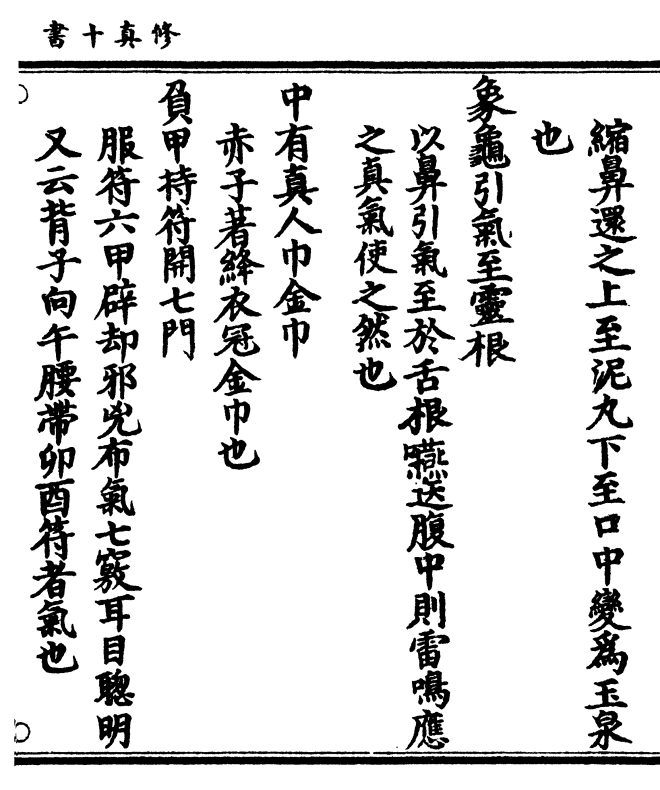 修真十書
縮鼻還之上至泥丸下至口中變爲玉泉
也
象龜引氣至靈根
以鼻引氣至於舌根嚥送腹中則雷鳴應
之真氣使之然也
中有真人巾金巾
赤子著絳衣冠金巾也
負甲持符開七門
服符六甲辟却邪兇布氣七竅耳目聰明
又云背子向午腰帶卯酉符者氣也